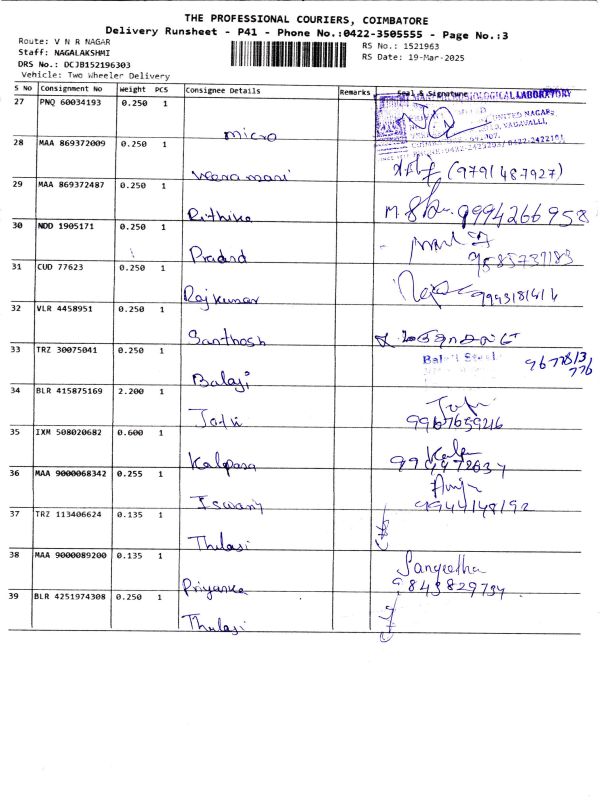 THE PROFESSIONAL COURIERS, COIMBATORE
Delivery Runsheet - P41 - Phone No.:0422-3505555 - Page No.:3
Route: V N R NAGAR
Staff: NAGALAKSHMI
DRS No.: DCJB152196303
Vehicle: Two Wheeler Delivery
RS No.: 1521963
RS Date: 19-Mar-2025
S No Consignment No Weight PCS Consignee Details Remarks Seal & Signature
27 PNQ 60034193 0.250 1 micro
28 MAA 869372009 0.250 1 Veeramani (9791487927)
29 MAA 869372487 0.250 1 Rithika 9994266958
30 NDD 1905171 0.250 1 Pradad 9585789183
31 CUD 77623 0.250 1 Rajkumar
32 VLR 4458951 0.250 1 Santhosh
33 TRZ 30075041 0.250 1 Balaji
34 BLR 415875169 2.200 1
35 IXM 508020682 0.600 1 Kalpana
36 MAA 9000068342 0.255 1 Iswary
37 TRZ 113406624 0.135 1 Thulasi
38 MAA 9000089200 0.135 1 Priyanka Sangeetha 9843829734
39 BLR 4251974308 0.250 1 Thulasi